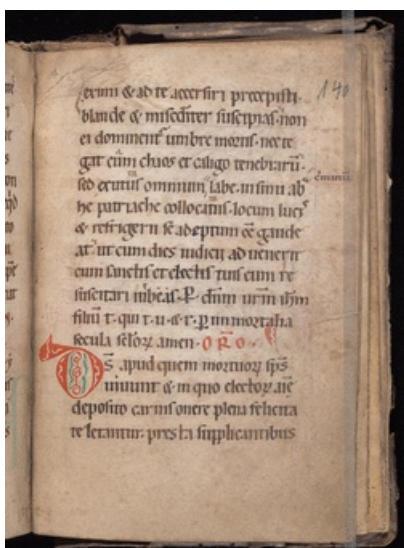 140
exim & ad te accersiri precepisti·
blande & misedit̄er suscipias· non
ei dominent̄ umbre mortis· nec te
gat eum chaos et caligo tenebrarū·
sed exutus omnium labe· in sinu ab
he patriarche collocatus· locum luc
& refrigerii se adeptum eē gaude
at· ut cum dies iudicii aduenerit
cum sanctis et electis tuis eum re
suscitari iubeas· P· dn̄m nr̄m ih̄m
filiū t· qui t· u· & r· p̄ immortalia
secula sclōꝝ amen· ORO·
DS̄ apud quem mortuoꝝ sp̄s
uiuunt & in quo electoꝝ aīe
deposito carnis onere plena felicita
te letantur· presta supplicantibus